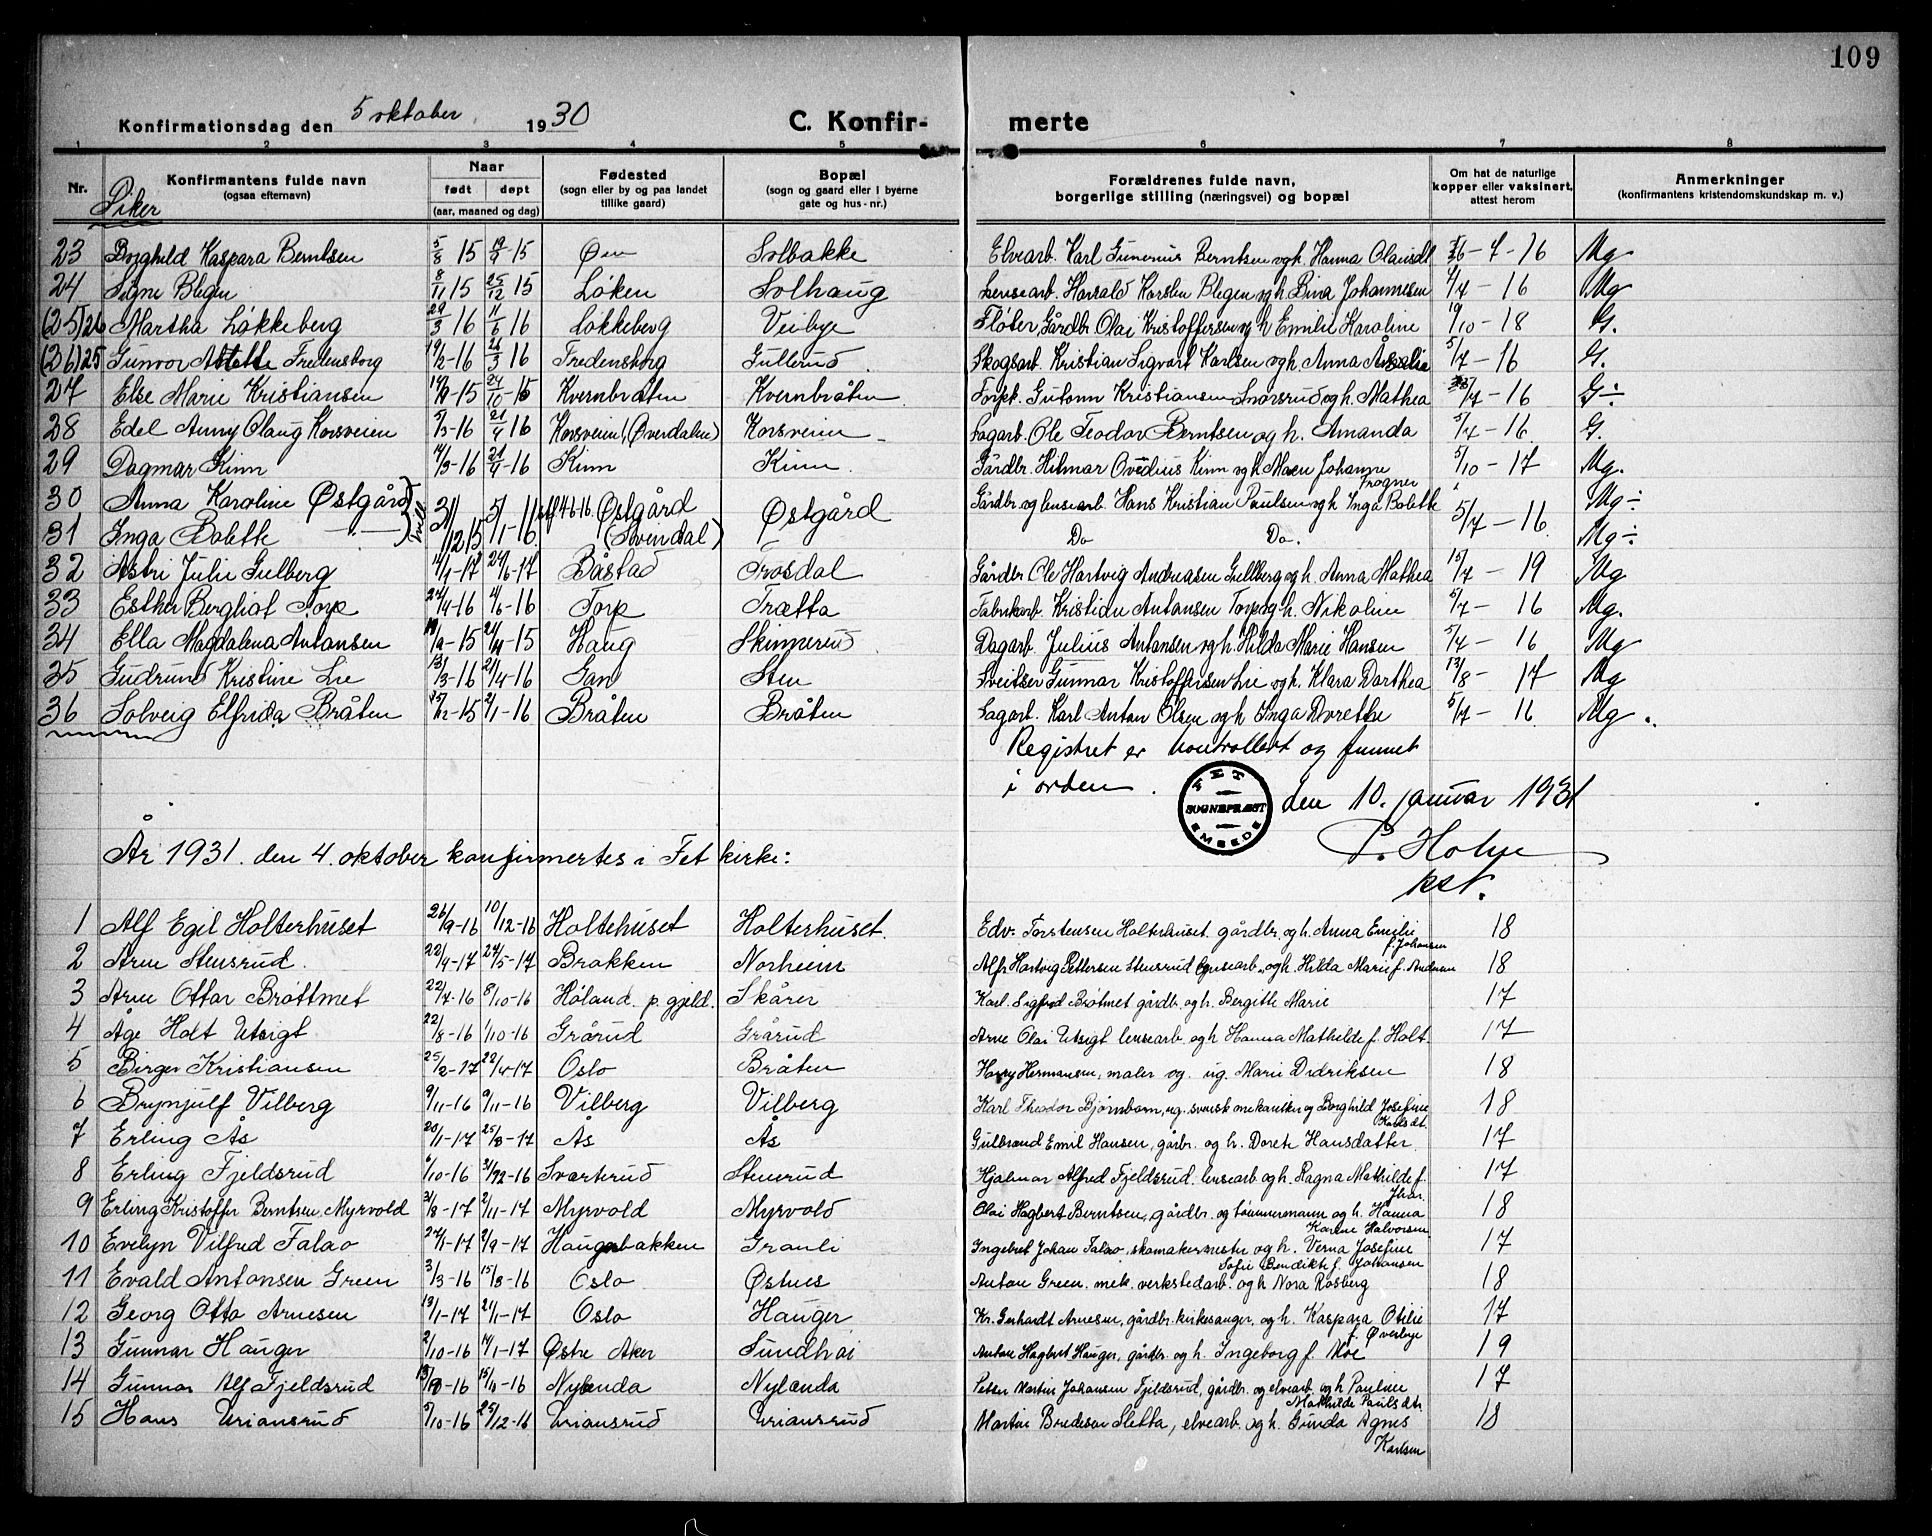 109
Konfirmationsdag den 5 oktober 1930 C. Konfir- merte
1 2 3 4 5 6 7 8
Nr. Konfirmantens fulde navn (ogsaa efternavn) Naar født døpt (aar, maaned og dag) Fødested (sogn eller by og paa landet tillike gaard) Bopæl (sogn og gaard eller i byerne gate og hus-nr.) Forældrenes fulde navn, borgerlige stilling (næringsvei) og bopæl Om hat de naturlige kopper eller vaksinert, attest herom Anmerkninger (konfirmantens kristendomskundskap m. v.)
Piker
23 Borghild Kaspara Berntsen 5/8 15 19/9-15 Øen Solbakke Elvearb. Karl Gunerius Berntsen og h. Hanna Olausdt - 7 - 16 Mg
24 Signe Blegen 8/11 15 25/12 15 Løken Solhaug Lensearb. Harald Karsten Blegen og h. Bina Johannesen 4/7 - 16 Mg
(25) 26 Martha Løkkeberg 29/3 16 11/6 16 Løkkeberg Veibye Fløter, Gårdbr. Olai Kristoffersen og h Emilie Karoline 19/10 - 18 G.
(26) 25 Gunvor Fredensborg 19/2-16 26/3 16 Fredensborg Gullerud Skogsarb. Kristian Sigvart Karlsen og h. Anna 5/7 - 16 G.
27 Else Marie Kristiansen 14/9-15 24/10-15 Kvernbråten Kvernbråten Forpk. Gutorm Kristiansen Snorsrud og h. Mathea /7 - 16 G÷
28 Edel Anny Olaug Korsveien 5/3-16 21/4 16 Korsveien (Øverdalen) Korsveien Sagarb. Ole Teodor Berntsen og h. Amanda 5/7 - 16 G.
29 Dagmar Kinn 14/3-16 21/4-16 Kinn Kinn Gårdbr. Hilmar Ovedius Kinn og h Maren Johanne 5/10 - 17 Mg.
Frogner
30 Anna Karoline Østgård 31/12 15 5/1-16 Østgård Østgård Gårdbr. og lensearb. Hans Kristian Paulsen og h Inga Bolette 5/7 - 16 Mg÷
31 Inga Bolette -"- (Svendal) Do Do. Mg÷
32 Astri Julie Gulberg 14/1-17 24/6-17 Båstad Trosdal Gårdbr Ole Hartvig Andreasen Gullberg og h. Anna Mathea 15/7 - 19 Mg
33 Esther Bergliot Torp 24/4-16 4/6-16 Torp Trætta Fabrikarb. Kristian Antonsen Torp og h. Nikoline 5/7 - 16 Mg.
34 Ella Magdalena Antonsen 19/9-15 24/11-15 Haug Skinnerud Dagarb. Julius Antonsen og h. Hilda Marie Hansen 5/7 - 16 Mg
35 Gudrund Kristine Lie 13/3-16 21/4-16 Gan Sten Sveitser Gunnar Kristoffersen Lie og h. Klara Dorthea 13/8 - 17 Mg
36 Solveig Elfrida Bråten 25/12-15 2/1-16 Bråten Bråten Sagarb. Karl Anton Olsen og h Inga Dorethe 5/7 - 16 Mg.
Registret er kontrollert og funnet
i orden. den 10. januar 1931
FET SOGNEPRÆST EMBEDE
P. Holye
kst.
År 1931. den 4. oktober konfirmertes i Fet kirke:
1 Alf Egil Holterhuset 26/9-16 10/12-16 Holtehuset Holterhuset. Edv. Torstensen Holterhuset. gårdbr. og h. Anna Emilie 18
f. Johansen
2 Arne Stensrud. 22/4-17 24/5-17 Brakken Norheim Alfr. Hartvig Pettersen Stensrud lensearb. og h Hilda Marie f. Andersen 18
3 Arne Ottar Brøttmet 22/7-16 8/10-16 Høland. p. gjeld. Skårer Karl. Sigfred Brøtmet gårdbr. og h. Bergitte Marie 17
4 Åge Holt Utsigt 22/8-16 1/10-16 Grårud Grårud Arne Olai Utsigt lensearb. og h Hanna Mathilde f. Holt. 17
5 Birger Kristiansen 25/2-17 22/4-17 Oslo Bråten Harry Hermansen, maler og ug. Marie Didriksen 18
6 Brynjulf Vilberg 9/11-16 9/11-16 Vilberg Vilberg Karl Theodor Bjørnbom, ug. svensk mekaniker og Borghild Josefine 18
Karlsdt.
7 Erling Ås 20/1-17 25/3-17 Ås Ås Gulbrand Emil Hansen, gårbr. og h. Dorete Hansdatter. 17
8 Erling Fjeldsrud 6/10-16 31/12-16 Svarterud Stenerud Hjalmar Alfred Fjeldsrud. lensearb og h. Ragna Mathilde f. 17
9 Erling Kristoffer Berntsen Myrvold 31/8-17 2/11-17 Myrvold Myrvold Olai Hagbert Berntsen, gårdbr. og tømmermann og h. Hanna 18
Karine Halvorsen
10 Evelyn Vilfred Falao 24/1-17 2/9-17 Haugerbakken Granli Ingebret Johan Falao. skomakermester og h. Verna Josefine 17
Sofie Bendikte f. Johansen
11 Evald Antonsen Green 3/3-16 15/8-16 Oslo Østnes Anton Green. mek. verkstedarb. og h Nora Rosberg 18
12 Georg Otto Arnesen 19/1-17 21/1-17 Oslo Hauger Kr. Gerhardt Arnesen, gårdbr. kirkesanger, og h. Kaspara Otilie 17
f. Øverbye
13 Gunnar Hauger 2/10-16 14/1-17 Østre Aker Sundhai Anton Hagbert Hauger, gårdbr. og h. Ingeborg f. Moe 19
14 Gunnar Alf Fjeldsrud 13/8-16 15/10-16 Nylænda Nylænda Peter Martin Johansen Fjeldsrud, gårdbr. og elvearb. og h Pauline 17
Mathilde Paulsdt.
15 Hans Uriansrud 5/10-16 25/12-16 Uriansrud Uriansrud Martin Bredesen Sletta, elvearb. og h. Gunda Agnes 18
Karlsen